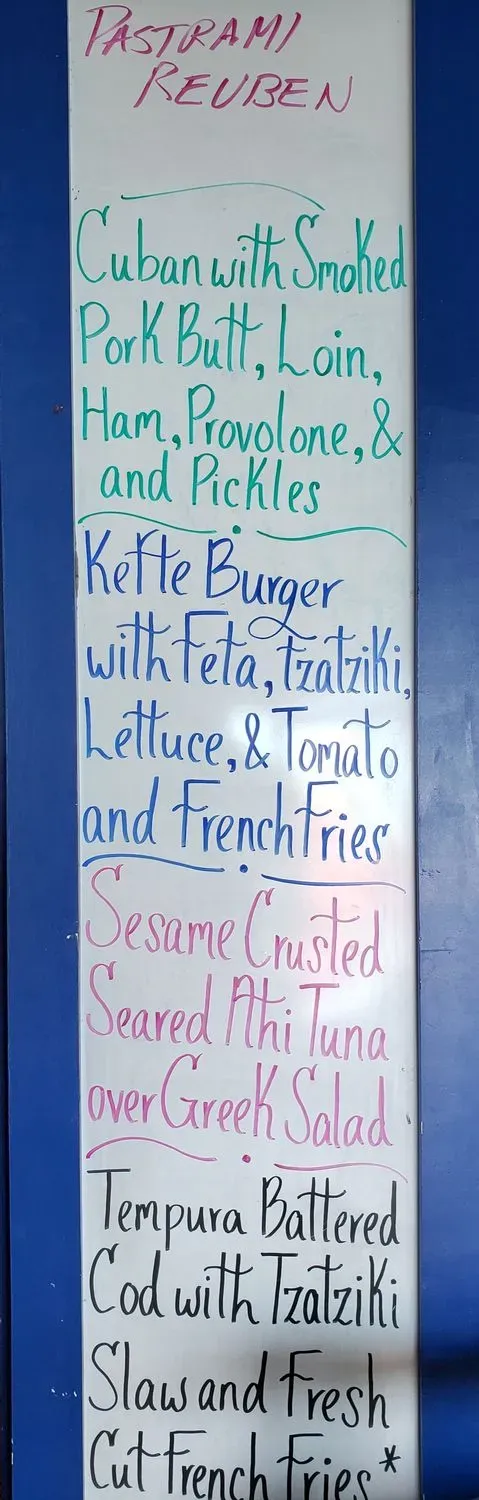 PASTRAMI
REUBEN
Cuban with Smoked
Pork Butt, Loin,
Ham, Provolone, &
and Pickles
Kefte Burger
with Feta, Tzatziki,
Lettuce, & Tomato
and French Fries
Sesame Crusted
Seared Ahi Tuna
over Greek Salad
Tempura Battered
Cod with Tzatziki
Slaw and Fresh
Cut French Fries*